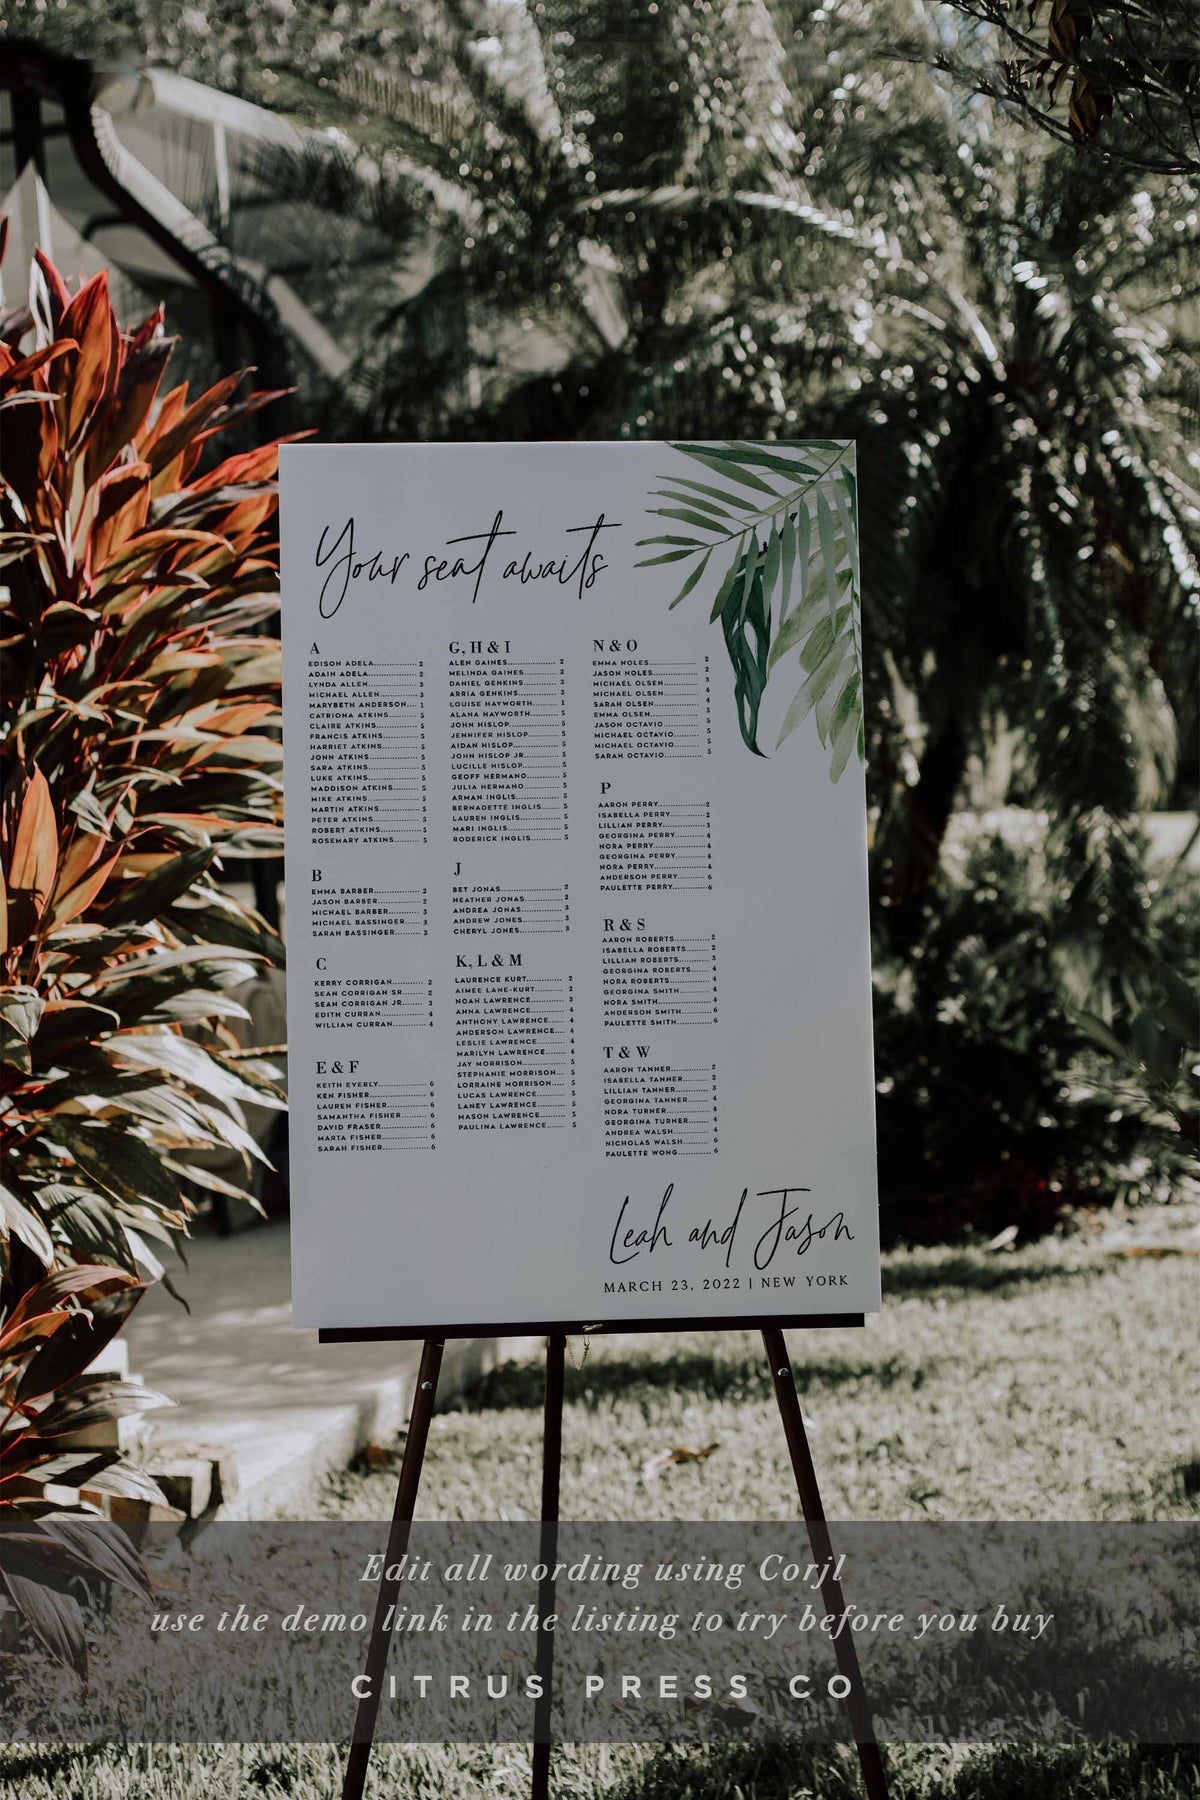 Your seat awaits
A
EDISON ADELA............2
ADAIN ADELA............2
LYNDA ALLEN............3
MICHAEL ALLEN............3
MARYBETH ANDERSON....1
CATRIONA ATKINS........5
CLAIRE ATKINS............5
FRANCIS ATKINS............5
HARRIET ATKINS............5
JONN ATKINS............5
SARA ATKINS............5
LUKE ATKINS............5
MADDISON ATKINS........5
MIKE ATKINS............5
MARTIN ATKINS............5
PETER ATKINS............5
ROBERT ATKINS............5
ROSEMARY ATKINS........5
B
EMMA BARBER............2
JASON BARBER............2
MICHAEL BARBER........3
MICHAEL BASSINGER....3
SARAH BASSINGER........3
C
KERRY CORRIGAN........2
SEAN CORRIGAN SR......2
SEAN CORRIGAN JR......3
EDITH CURRAN............4
WILLIAM CURRAN........4
E & F
KEITH EVERLY............6
KEN FISHER............6
LAUREN FISHER............6
SAMANTHA FISHER........6
DAVID FRASER............6
MARTA FISHER............6
SARAH FISHER............6
G, H & I
ALEN GAINES............2
MELINDA GAINES........2
DANIEL GENKINS........3
ARRIA GENKINS............3
LOUISE HAYWORTH......1
ALANA HAYWORTH......5
JOHN HISLOP............5
JENNIFER HISLOP........5
AIDAN HISLOP............5
JOHN HISLOP JR........5
LUCILLE HISLOP........5
GEOFF HERMANO........5
JULIA HERMANO........5
ARMAN INGLIS............5
BERNADETTE INGLIS....5
LAUREN INGLIS............5
MARI INGLIS............5
RODERICK INGLIS........5
J
BET JONAS............2
HEATHER JONAS........2
ANDREA JONAS............3
ANDREW JONES............3
CHERYL JONES............3
K, L & M
LAURENCE KURT............2
AIMEE LANE-KURT........2
NOAH LAWRENCE........3
ANNA LAWRENCE........4
ANTHONY LAWRENCE....4
ANDERSON LAWRENCE....4
LESLIE LAWRENCE........4
MARILYN LAWRENCE....4
JAY MORRISON............5
STEPHANIE MORRISON...5
LORRAINE MORRISON....5
LUCAS LAWRENCE........5
LANEY LAWRENCE........5
MASON LAWRENCE........5
PAULINA LAWRENCE......5
N & O
EMMA NOLES............2
JASON NOLES............2
MICHAEL OLSEN............3
MICHAEL OLSEN............4
SARAH OLSEN............4
EMMA OLSEN............5
JASON OCTAVIO............5
MICHAEL OCTAVIO........5
MICHAEL OCTAVIO........5
SARAH OCTAVIO............5
P
AARON PERRY............2
ISABELLA PERRY........2
LILLIAN PERRY............3
GEORGINA PERRY........4
NORA PERRY............4
GEORGINA PERRY........4
NORA PERRY............4
ANDERSON PERRY........6
PAULETTE PERRY........6
R & S
AARON ROBERTS............2
ISABELLA ROBERTS......2
LILLIAN ROBERTS........3
GEORGINA ROBERTS......4
NORA ROBERTS............4
GEORGINA SMITH........4
NORA SMITH............4
ANDERSON SMITH........6
PAULETTE SMITH........6
T & W
AARON TANNER............2
ISABELLA TANNER........2
LILLIAN TANNER........3
GEORGINA TANNER........4
NORA TURNER............4
GEORGINA TURNER........4
ANDREA WALSH............4
NICHOLAS WALSH........6
PAULETTE WONG........6
Leah and Jason
MARCH 23, 2022 | NEW YORK
Edit all wording using Corjl
use the demo link in the listing to try before you buy
CITRUS PRESS CO